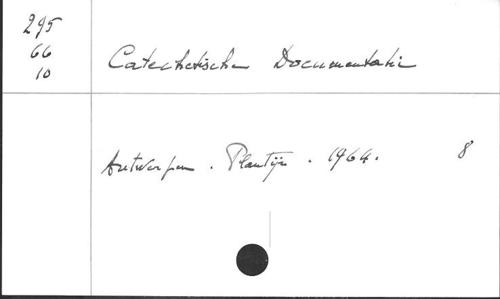 295
66
10
Catechetische Documentatie
Antwerpen. Plantijn. 1964. 8